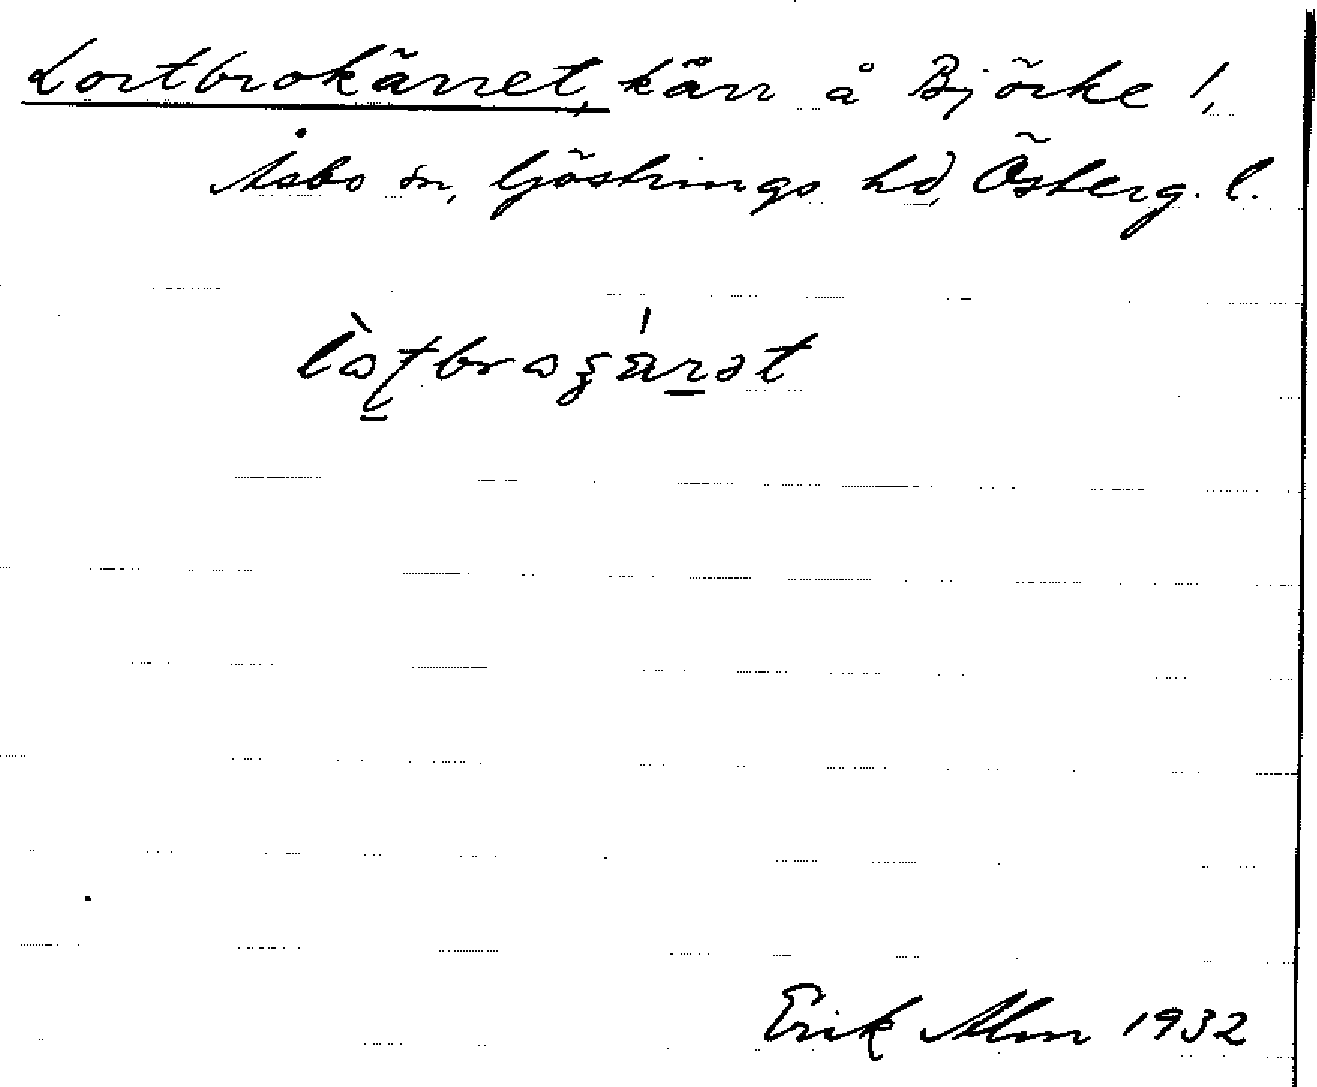 Lortbrokärret, kärr å Björke 1,
Åsbo sn, Göstrings hd, Österg. l.
Erik Alm 1932